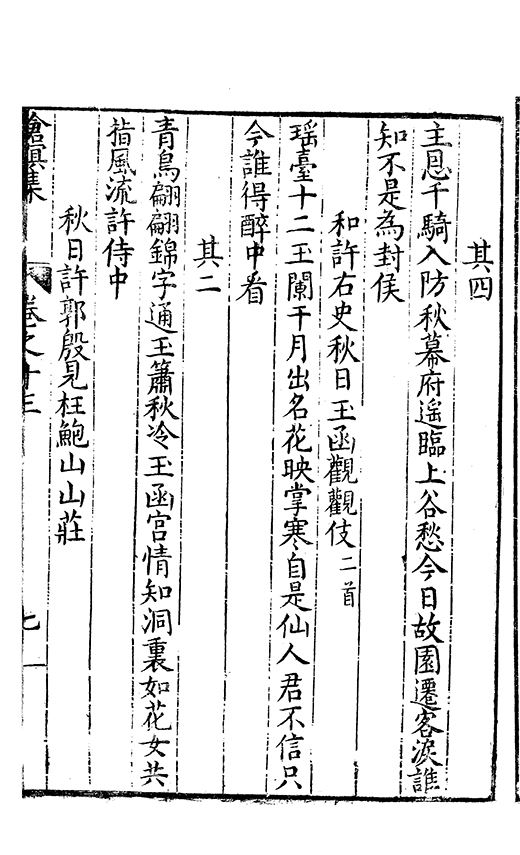 其四
主恩千騎入防秋幕府遥臨上谷愁今日故園遷客淚誰
知不是為封侯
和許右史秋日玉函觀觀伎二首
瑶臺十二玉闌干月出名花映掌寒自是仙人君不信只
今誰得醉中看
其二
青鳥翩翩錦字通玉簫秋冷玉函宫情知洞裏如花女共
指風流許侍中
秋日許郭殷見枉鮑山山莊
滄溟集 卷之十三 七